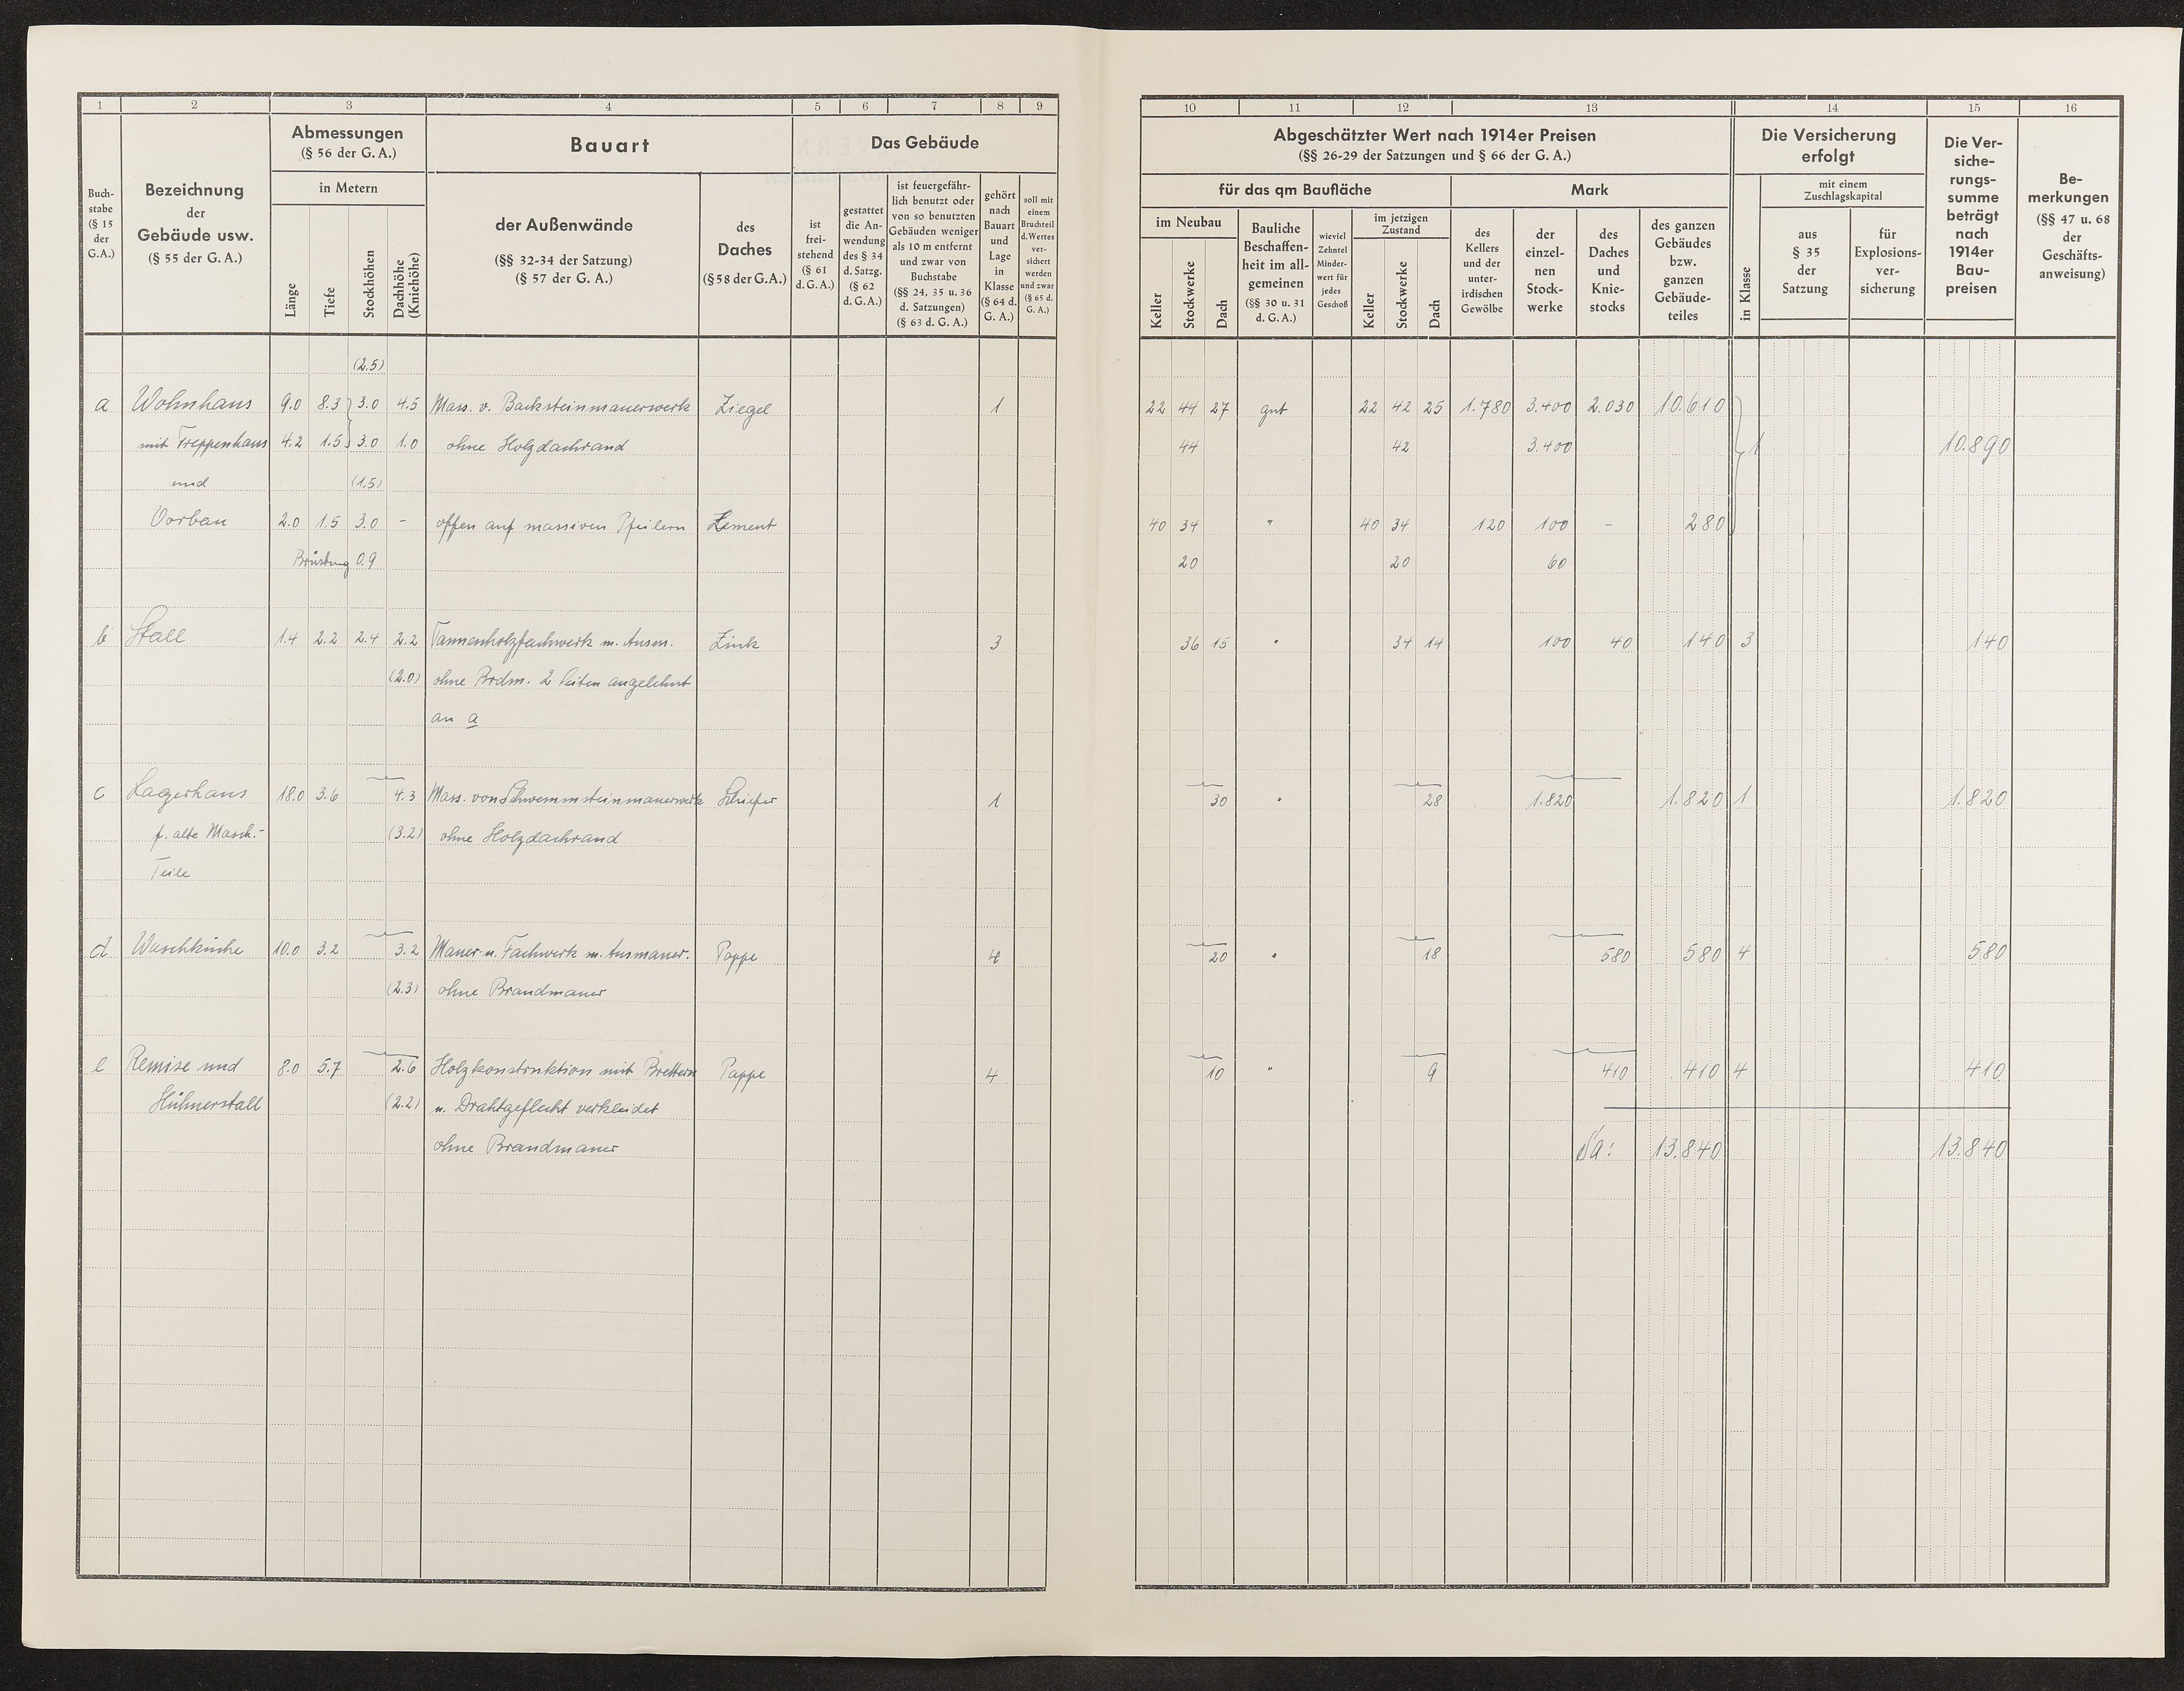 1 2 3 4 5 6 7 8 9 10 11 12 13 14 15 16
Buch-
stabe
(§ 15
der
G.A.)
Bezeichnung
der
Gebäude usw.
(§ 55 der G. A.)
Abmessungen
(§ 56 der G. A.)
in Metern
Länge
Tiefe
Stockhöhen
Dachhöhe
(Kniehöhe)
Bauart
der Außenwände
(§§ 32-34 der Satzung)
(§ 57 der G. A.)
des
Daches
(§ 58 der G.A.)
Das Gebäude
ist
frei-
stehend
(§ 61
d. G. A.)
gestattet
die An-
wendung
des § 34
d. Satzg.
(§ 62
d. G.A.)
ist feuergefähr-
lich benutzt oder
von so benutzten
Gebäuden weniger
als 10 m entfernt
und zwar von
Buchstabe
(§§ 24, 35 u. 36
d. Satzungen)
(§ 63 d. G. A.)
gehört
nach
Bauart
und
Lage
in
Klasse
(§ 64 d.
G. A.)
soll mit
einem
Bruchteil
d. Wertes
ver-
sichert
werden
und zwar
(§ 65 d.
G. A.)
Abgeschätzter Wert nach 1914er Preisen
(§§ 26-29 der Satzungen und § 66 der G. A.)
für das qm Baufläche
im Neubau
Keller
Stockwerke
Dach
Bauliche
Beschaffen-
heit im all-
gemeinen
(§§ 30 u. 31
d. G. A.)
wieviel
Zehntel
Minder-
wert für
jedes
Geschoß
im jetzigen
Zustand
Keller
Stockwerke
Dach
Mark
des
Kellers
und der
unter-
irdischen
Gewölbe
der
einzel-
nen
Stock-
werke
des
Daches
und
Knie-
stocks
des ganzen
Gebäudes
bzw.
ganzen
Gebäude-
teiles
Die Versicherung
erfolgt
in Klasse
mit einem
Zuschlagskapital
aus
§ 35
der
Satzung
für
Explosions-
ver-
sicherung
Die Ver-
siche-
rungs-
summe
beträgt
nach
1914er
Bau-
preisen
Be-
merkungen
(§§ 47 u. 68
der
Geschäfts-
anweisung)
(2.5)
a Wohnhaus 9.0 8.3 3.0 4.5 Mass. v. Backsteinmauerwerk Ziegel 1 22 44 27 gut 22 42 25 1.780 3.400 2.030 10.610
mit Treppenhaus 4.2 1.5 3.0 1.0 ohne Holzdachrand 44 42 3.400 1 10.890
und (1.5)
Vorbau 2.0 1.5 3.0 - offen auf massiven Pfeilern Zement 40 34 " 40 34 120 100 - 280
Brüstung 0.9 20 20 60
b Stall 1.4 2.2 2.4 2.2 Tannenholzfachwerk m. Ausm. Zink 3 36 15 " 34 14 100 40 140 3 140
(2.0) ohne Brdm. 2 Seiten angelehnt
an a
c Lagerhaus 18.0 3.6 4.3 Mass. von Schwemmsteinmauerwerk Schiefer 1 30 " 28 1.820 1.820 1 1.820
f. alte Masch.- (3.2) ohne Holzdachrand
Teile
d Waschküche 10.0 3.2 3.2 Mauer u. Fachwerk m. Ausmauer. Pappe 4 20 " 18 580 580 4 580
(2.3) ohne Brandmauer
e Remise und 8.0 5.7 2.6 Holzkonstruktion mit Brettern Pappe 4 10 " 9 410 410 4 410
Hühnerstall (2.2) u. Drahtgeflecht verkleidet
ohne Brandmauer Sa: 13.840 13.840